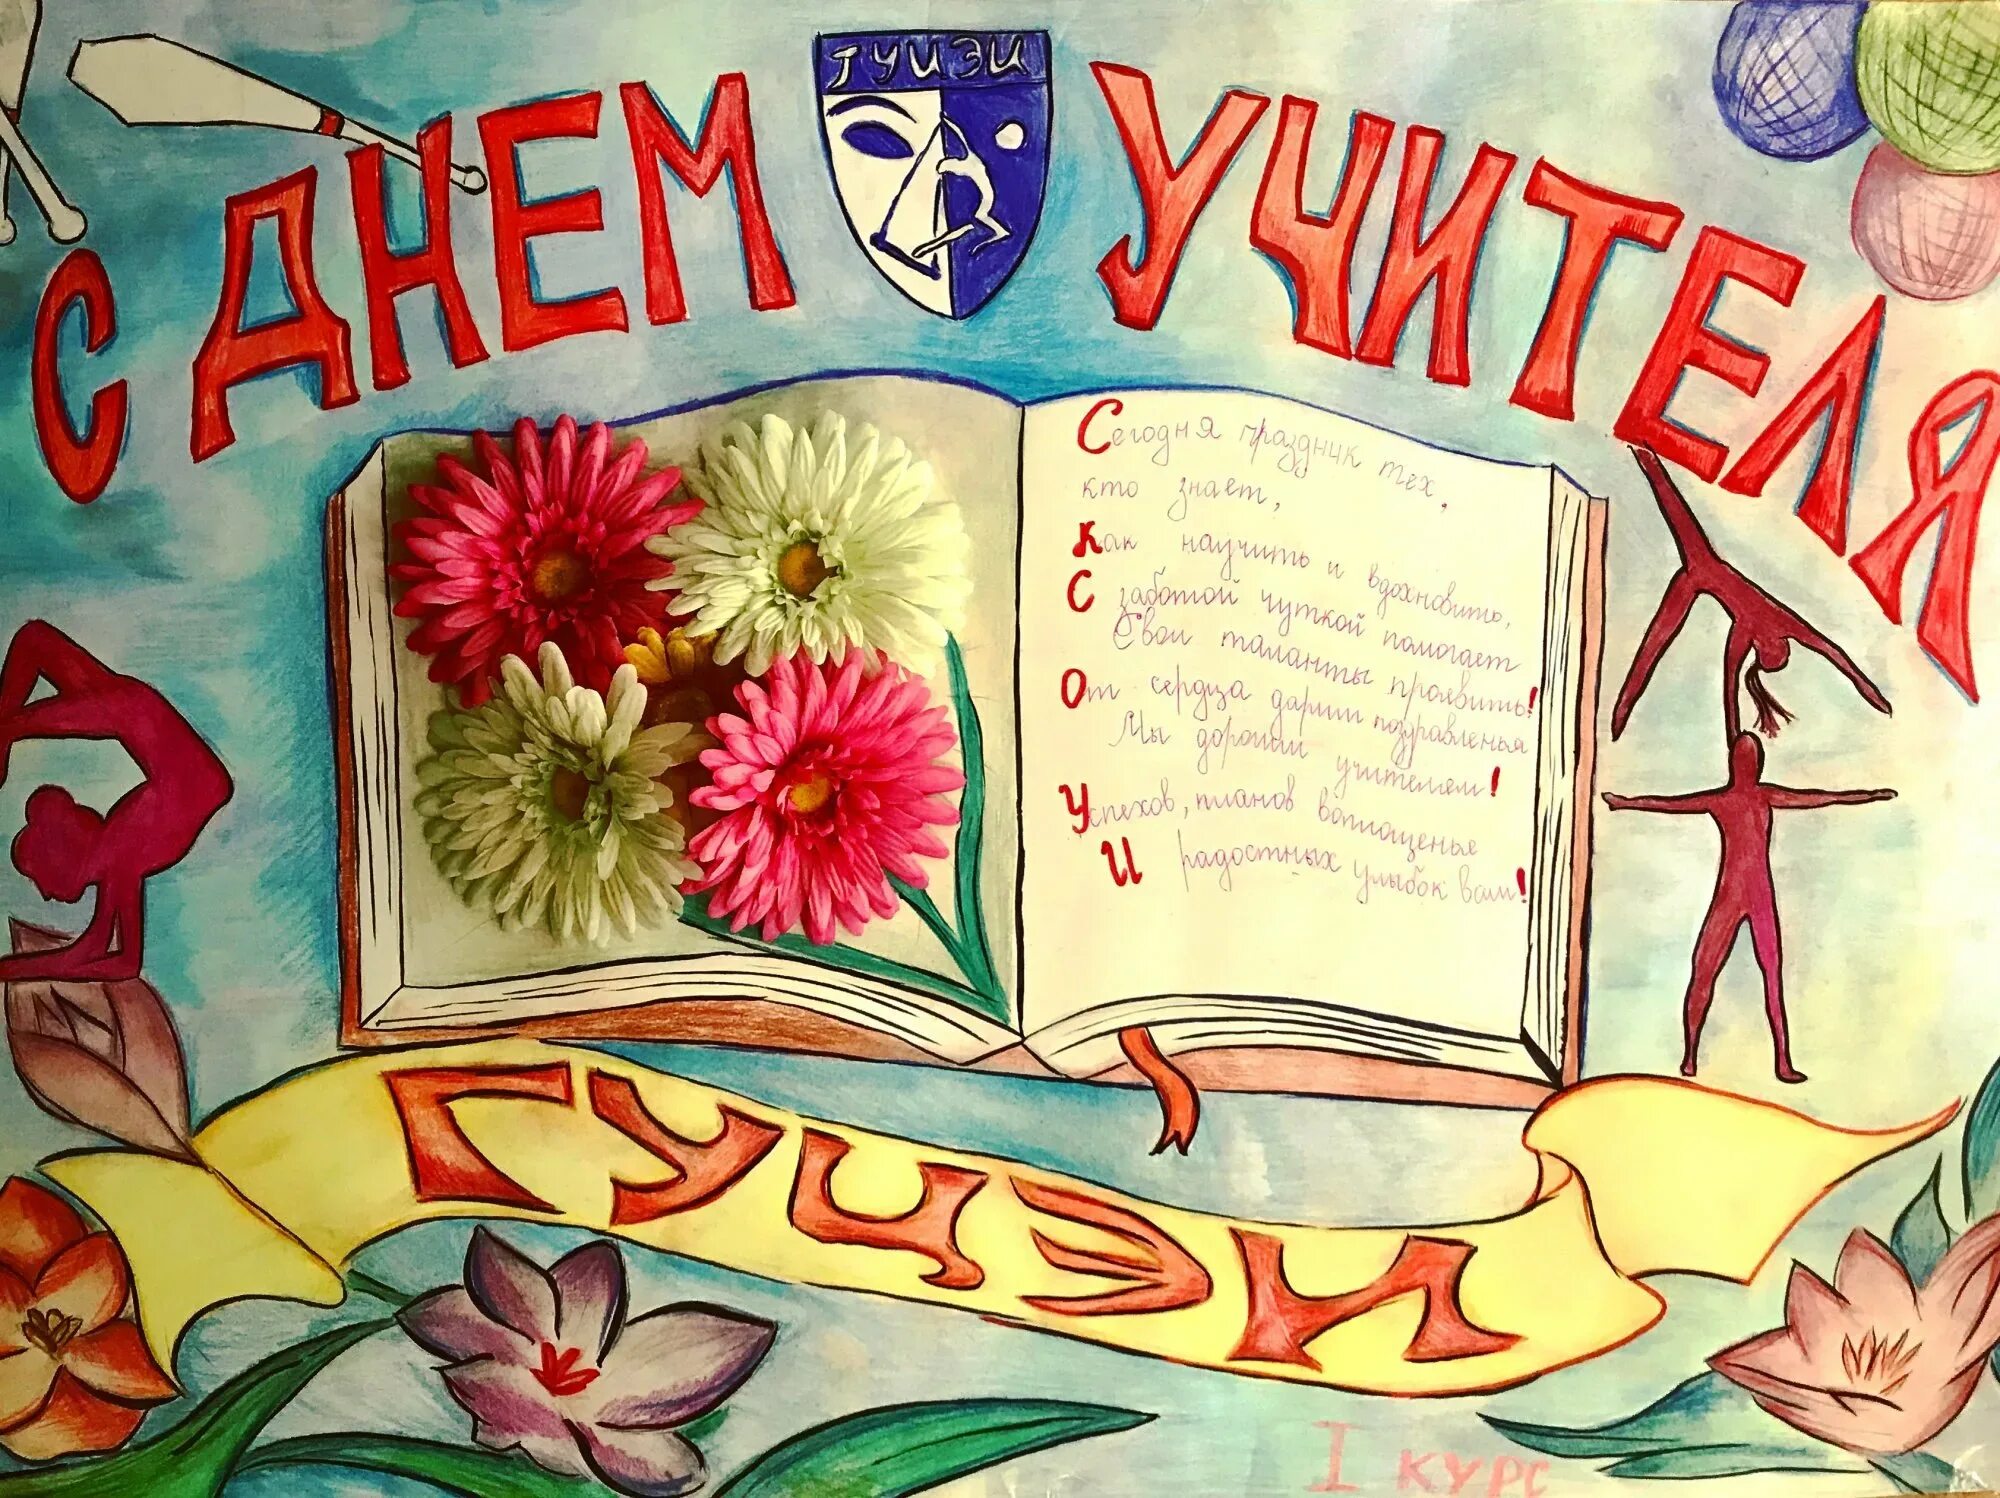 С ДНЕМ УЧИТЕЛЯ
ГУЦЭИ
Сегодня праздник тех,
кто знает,
Как научить и вдохновить,
С заботой чуткой помогает
Свои таланты проявить!
От сердца дарим поздравленья
Мы дорогим учителям!
Успехов, планов воплощенья
И радостных улыбок вам!
ГУЦЭИ
I курс